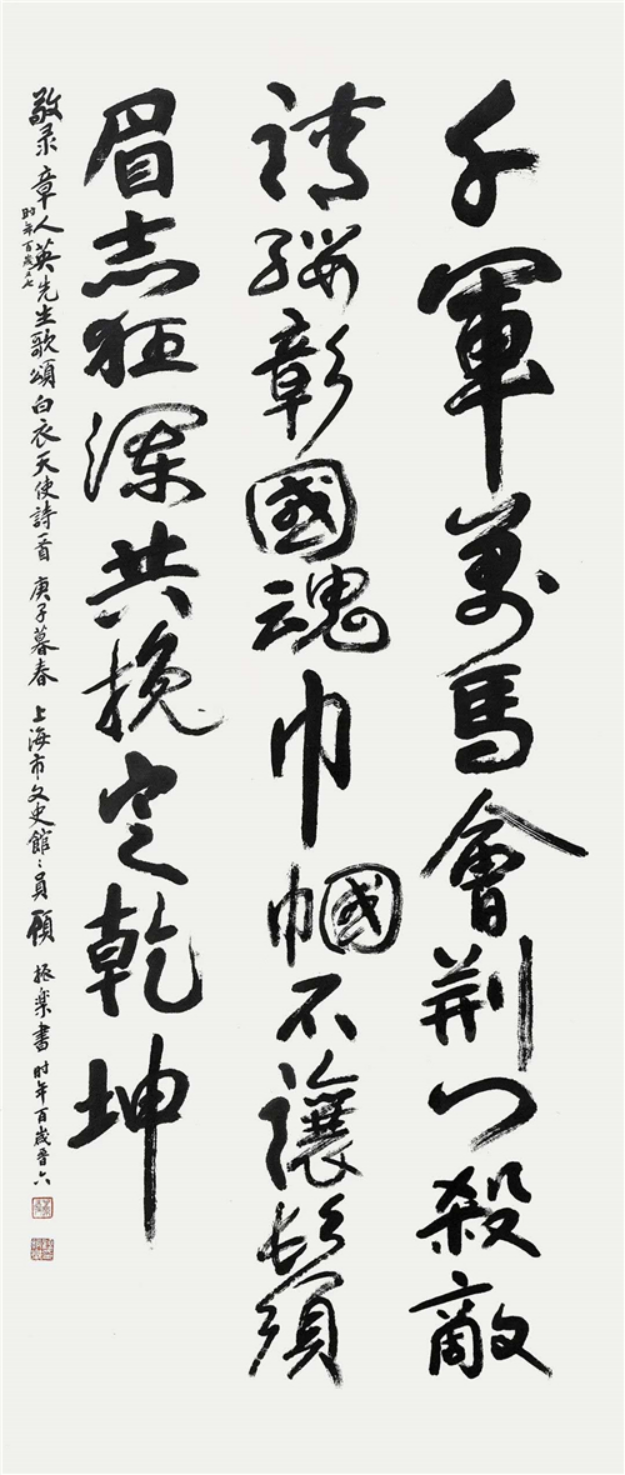 千軍萬馬會荆门殺敵
請纓彰國魂巾幗不讓鬚
眉志狂瀾共挽定乾坤
敬录章人英先生歌頌白衣天使詩一首 庚子暮春 上海市文史館館員顧振樂書时年百歲晉六
时年百歲又七